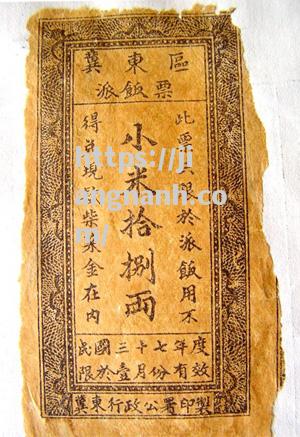 冀東區
派飯票
此票只限於派飯用不
小米拾捌兩
得兌現於柴菜金在內
民國三十七年度
限於壹月份有效
冀東行政公署印製
https://jiangnanh.com/